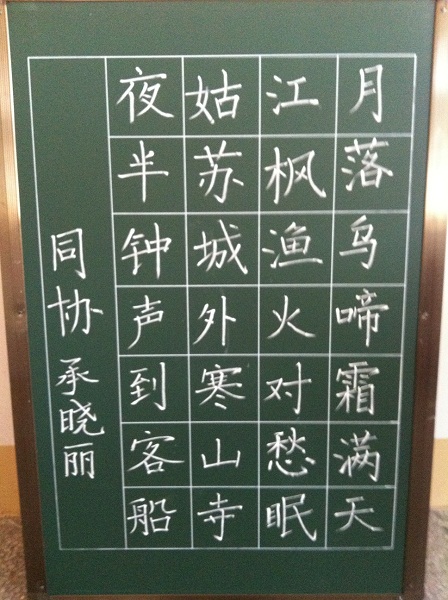 月落乌啼霜满天
江枫渔火对愁眠
姑苏城外寒山寺
夜半钟声到客船
同协 承晓丽